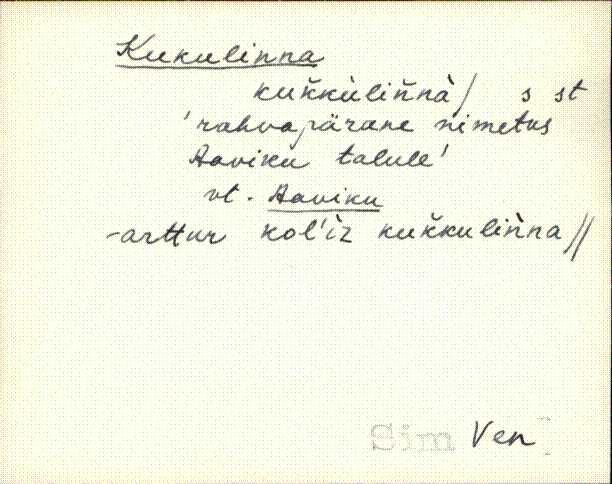 Kukulinna
kuk̆kùlin̆nà/ s st
'rahvapärane nimetus
Aaviku talule'
vt. Aaviku
-arttur kol'ìz kuk̆kulin̆na//
Sim Ven